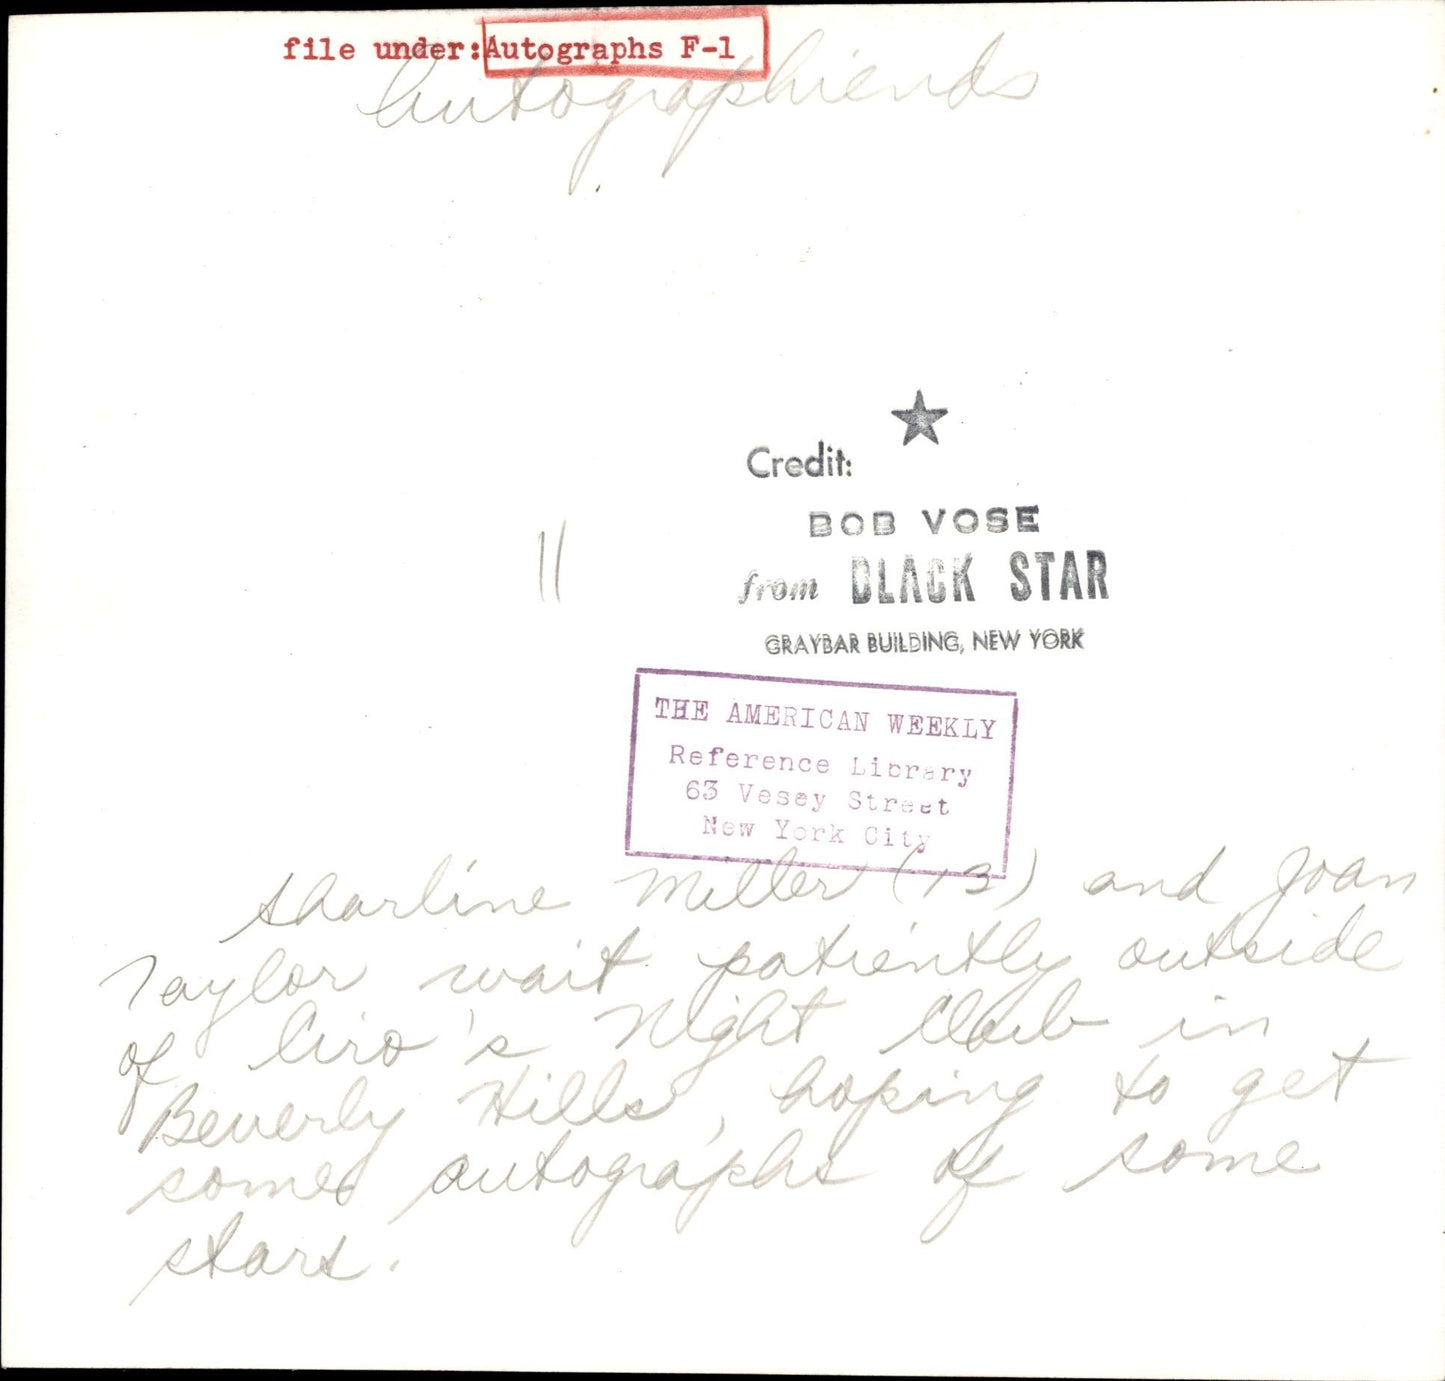 file under: Autographs F-1
Autographiends
Credit:
BOB VOSE
from BLACK STAR
GRAYBAR BUILDING, NEW YORK
11
THE AMERICAN WEEKLY
Reference Library
63 Vesey Street
New York City
Sharline Miller (13) and Joan
Taylor wait patiently outside
of Ciro's Night Club in
Beverly Hills, hoping to get
some autographs of some
stars.